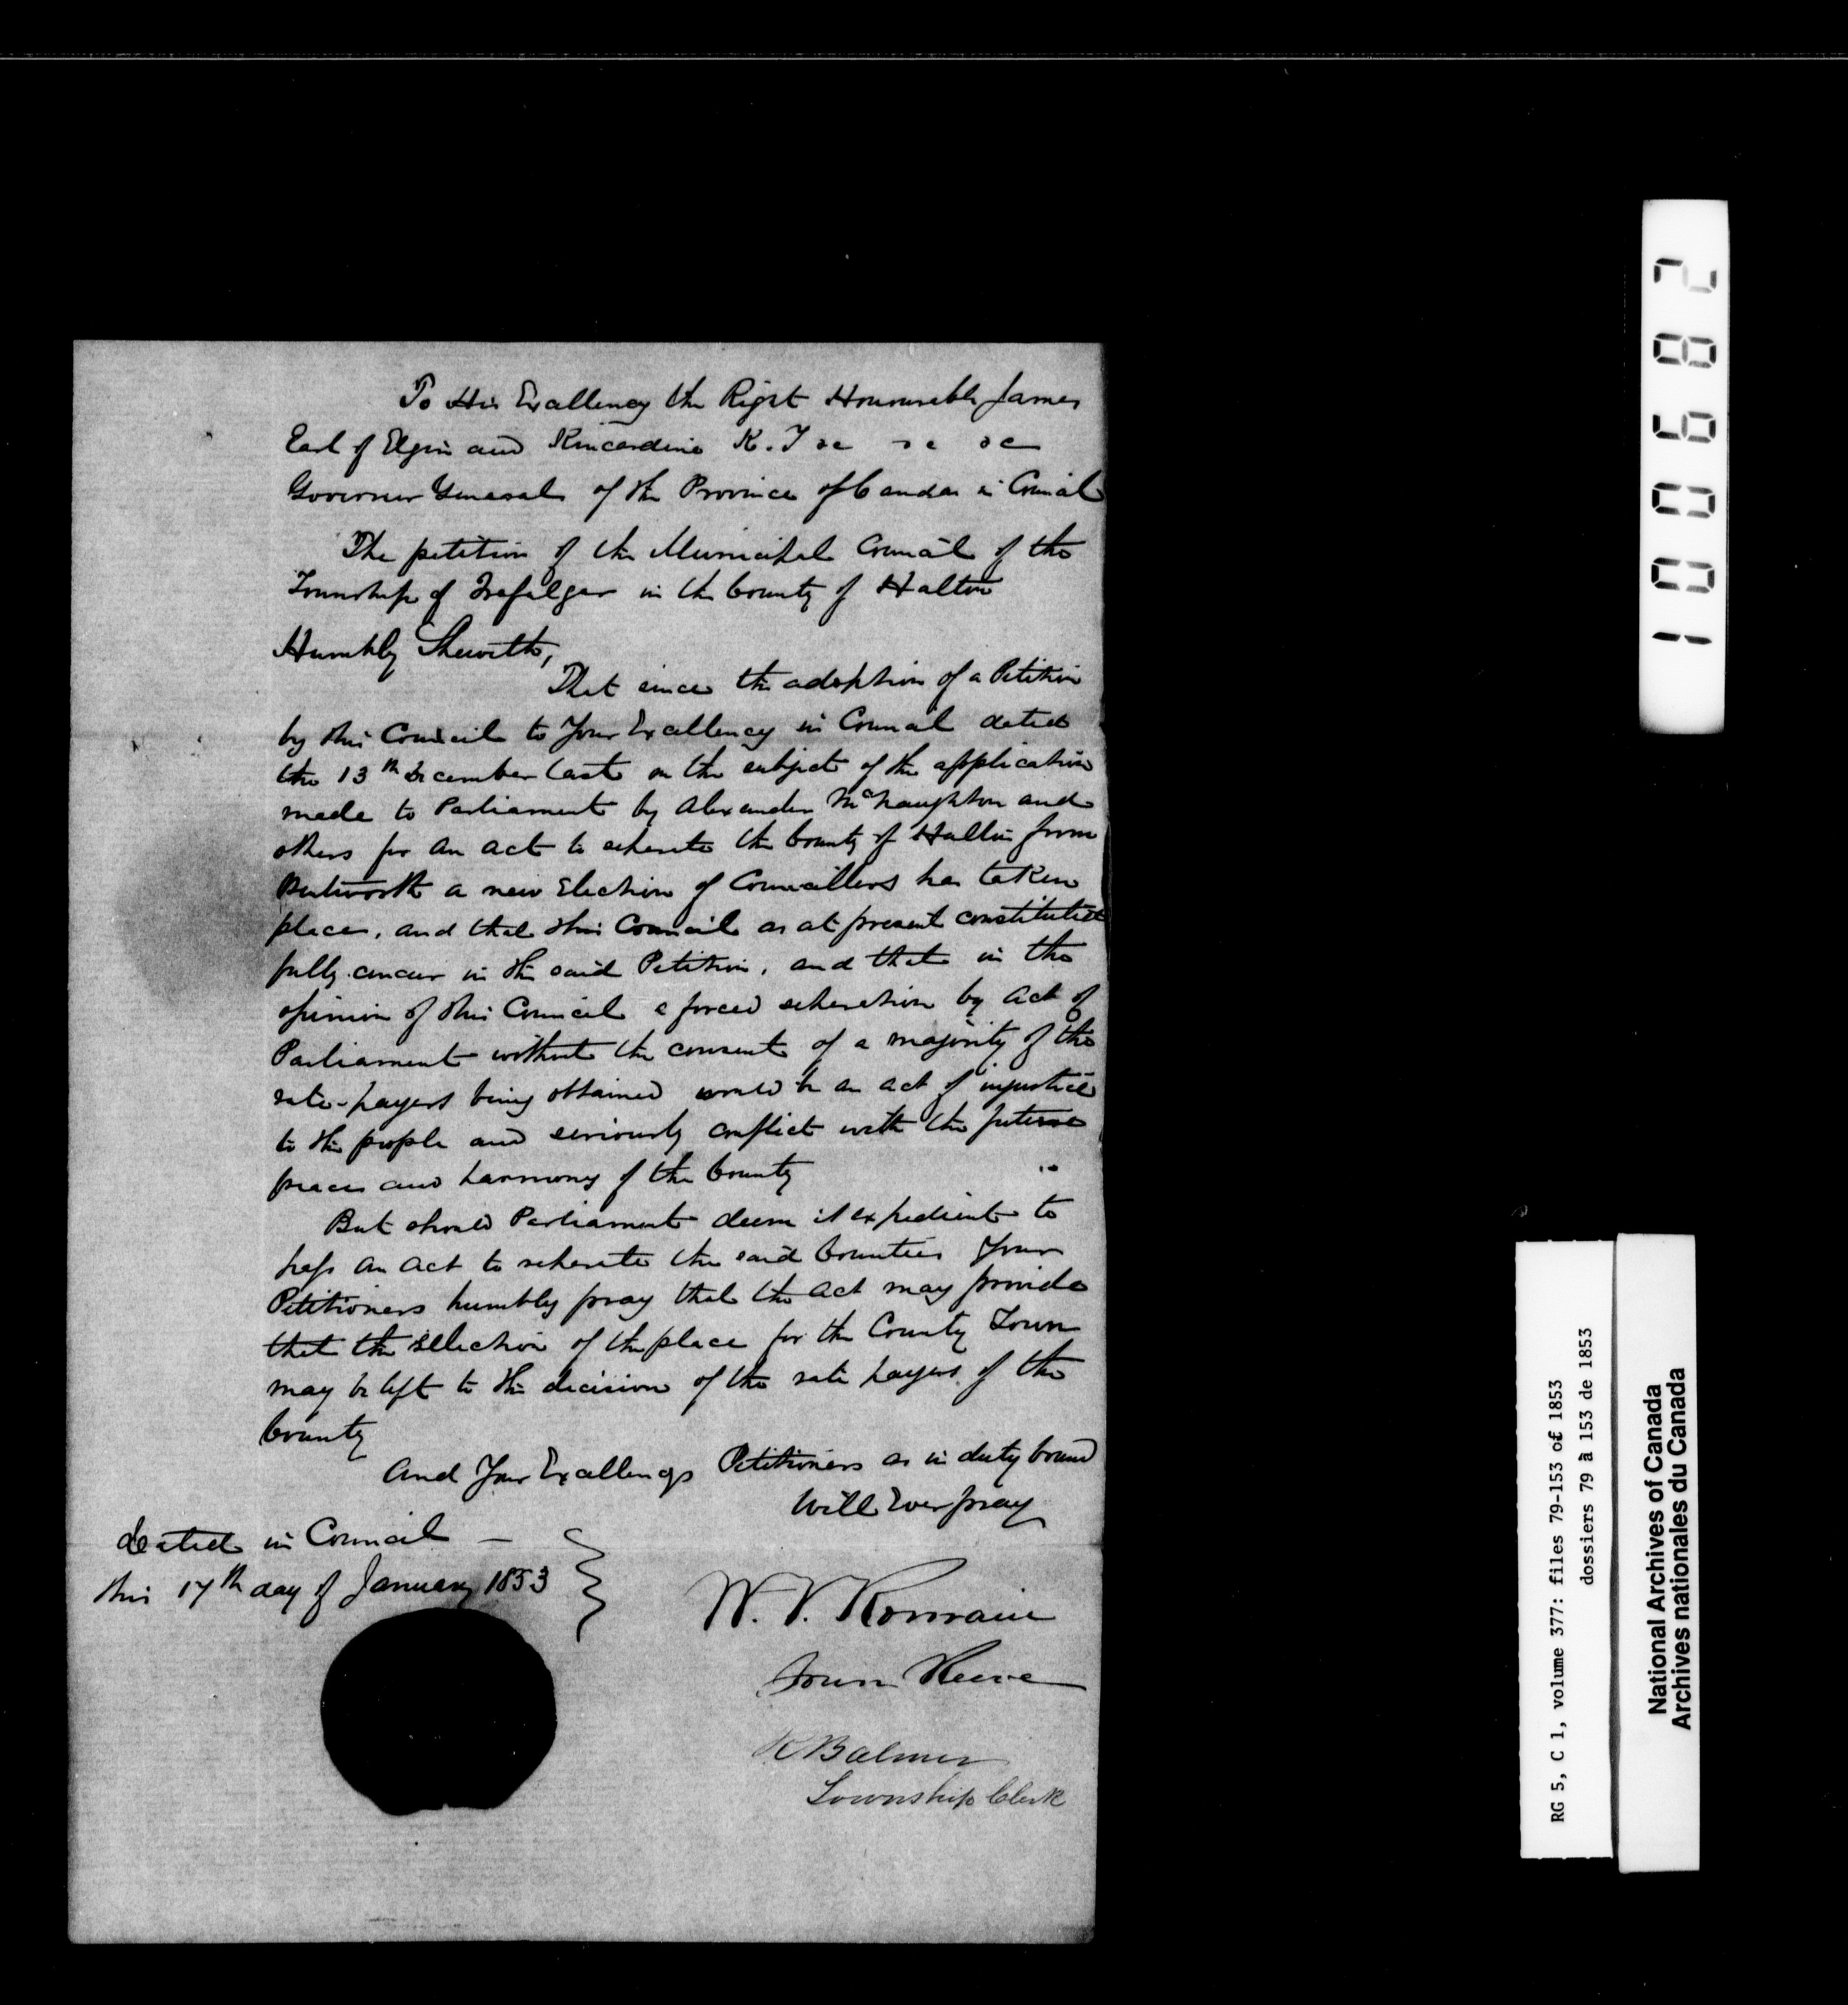 To His Excellency the Right Honourable James
Earl of Elgin and Kincardine K. T &c &c &c
Governor General of the Province of Canada in Council
The petition of the Municipal Council of the
Township of Trafalgar in the County of Halton
Humbly Sheweth,
That since the adoption of a Petition
by this Council to Your Excellency in Council dated
the 13th December last on the subject of the application
made to Parliament by Alexander McNaughton and
others for an act to seperate the County of Halton from
Wentworth a new Election of Councillors has taken
place, and that this Council as at present constituted
fully concur in the said Petition, and that in the
opinion of this Council a forced seperation by act of
Parliament without the consent of a majority of the
rate-payers being obtained would be an act of injustice
to the people and seriously conflict with the future
peace and harmony of the County
But should Parliament deem it expedient to
pass an act to seperate the said Counties Your
Petitioners humbly pray that the act may provide
that the selection of the place for the County Town
may be left to the decision of the rate payers of the
County
And Your Excellencys Petitioners as in duty bound
Will Ever pray
dated in Council —
this 17th day of January 1853
W. V. Romain
Town Reeve
R Balmer
Township Clerk
100682
RG 5, C 1, volume 377: files 79-153 of 1853
dossiers 79 à 153 de 1853
National Archives of Canada
Archives nationales du Canada